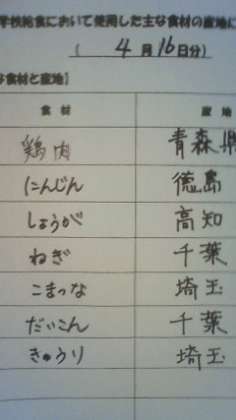 学校給食において使用した主な食材の産地に
( 4月16日分)
な食材と産地】
食材 産地
鶏肉 青森県
にんじん 徳島
しょうが 高知
ねぎ 千葉
こまつな 埼玉
だいこん 千葉
きゅうり 埼玉